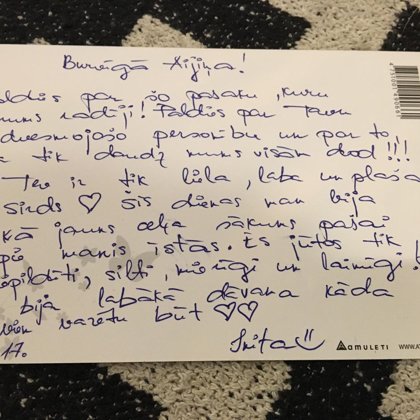 Burvīgā Aijiņa!
aldies par šo pasaku, kuru
mums radīji! Paldies par Tavu
dvesmojošo personību un par to,
a tik daudz mums visām dod!!!
Tev ir tik liela, laba un plaša
sirds ♡ šīs dienas man bija
kā jauns ceļa sākums pašai
pie manis īstās. Es jūtos tik
epildīti, silti, mierīgi un laimīgi
bija labākā dāvana kāda
vien varētu būt ♡♡
17.
Inita
AMULETI
WWW.A